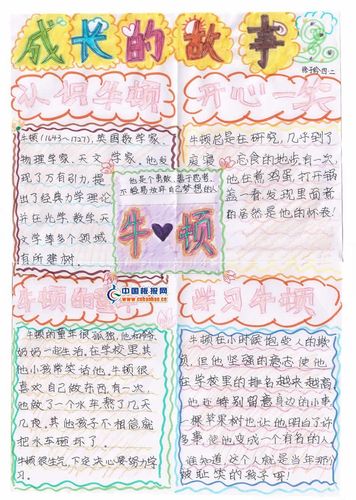 成长的故事
徐子晗 四.二
认识牛顿
开心一笑
牛顿(1643~1727),英国数学家、
物理学家、天文学家,他发
现了万有引力,提
出了经典力学理论
并在光学、数学、天
文学等多个领域
有所建树。
牛顿总是在研究,几乎到了
废寝忘食的地步有一次
他在煮鸡蛋,打开锅
盖一看,发现里面煮
的居然是他的怀表!
他是个勇敢、善于思考、
不轻易放弃自己梦想的人
牛 顿
中国板报网
www.cnbanbao.cn
牛顿的
学习牛顿
牛顿的童年很孤独,他和
奶奶一起生活,在学校里其
他小孩常笑话他,牛顿很
喜欢自己做东西,有一次,
他做了一个水车熬了几天
几夜,其他孩子不相信就
把水车砸坏了。
牛顿很生气,下定决心要努力学
习。
牛顿在小时候抱受人的欺
负,但他坚强的意志使他
在学校里的排名越来越高
他还特别留意身边的小事
一棵苹果树也让他明白了许
多事,使他变成一个有名的人。
谁知道,这个人就是当年那个
被耻笑的孩子呀!